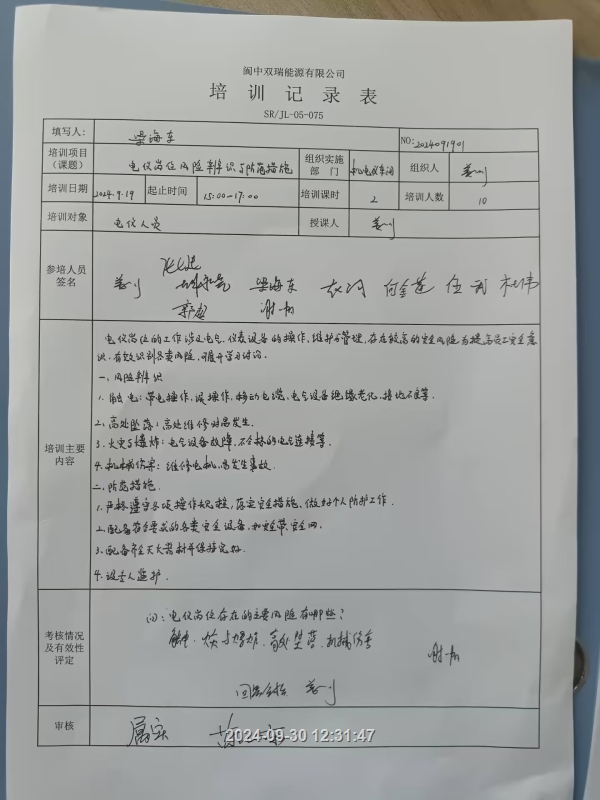 阆中双瑞能源有限公司
培训记录表
SR/JL-05-075
填写人: 梁海东 NO:2024091901
培训项目(课题) 电仪岗位风险辨识与防范措施 组织实施部门 机电仪车间 组织人 姜川
培训日期 2024.9.19 起止时间 15:00-17:00 培训课时 2 培训人数 10
培训对象 电仪人员 授课人 姜川
参培人员签名
姜川 梁海东 伍 杜伟
谢力
培训主要内容
电仪岗位的工作涉及电气、仪表设备的操作、维护与管理,存在较高的安全风险,为提高员工安全意
识,有效识别各类风险,开展学习讨论.
一、风险辨识
1.触电:带电操作,误操作,移动电缆,电气设备绝缘老化,接地不良等.
2.高处坠落:高处维修时易发生.
3.火灾与爆炸:电气设备故障,不合格的电气连接等.
4.机械伤害:维修电机,易发生事故.
二.防范措施.
1.严格遵守各项操作规程,落实安全措施,做好个人防护工作.
2.配备符合要求的各类安全设备,如安全带安全网.
3.配备齐全灭火器材并保持完好.
4.设专人监护.
考核情况及有效性评定
问:电仪岗位存在的主要风险有哪些?
触电、火灾与爆炸、高处坠落、机械伤害
谢力
回答合格 姜川
审核 属实
2024-09-30 12:31:47